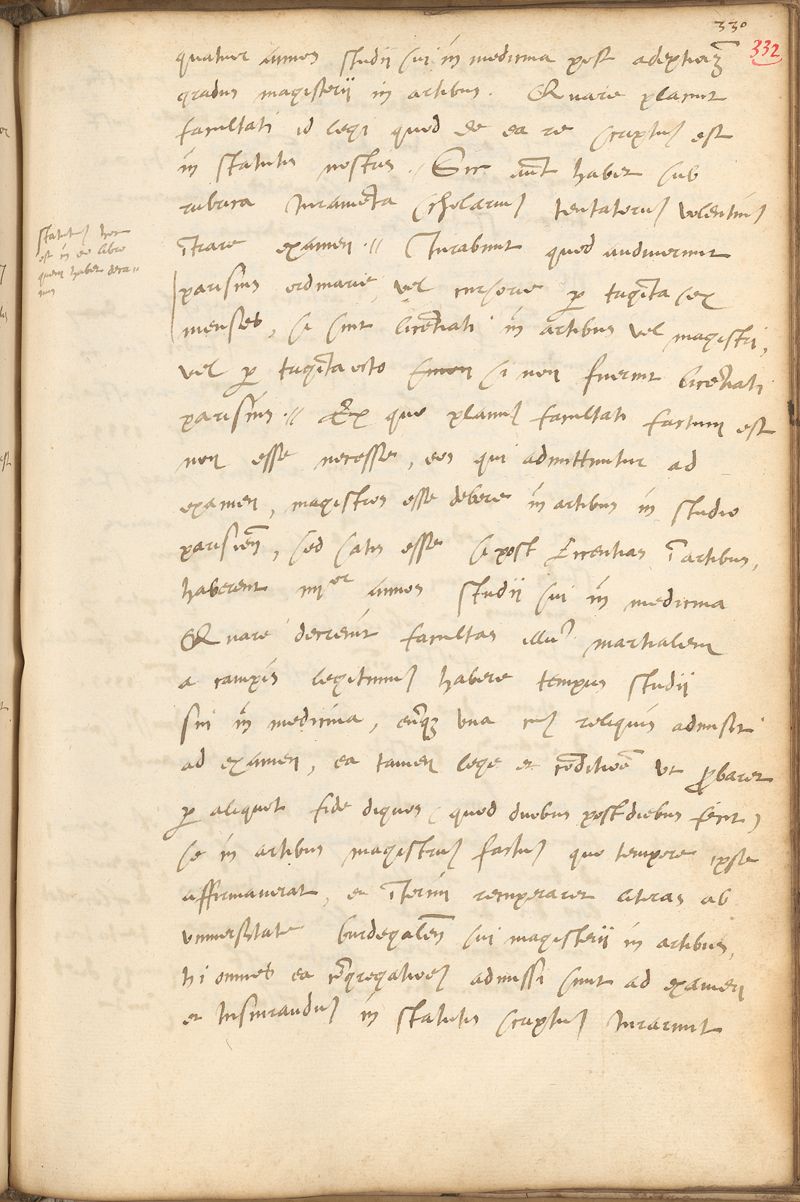 330
332
quatuor annos studij sui in medicina post adeptionē
gradus magisterij in artibus. Quare placuit
facultati id legi quod de ea re scriptū est
in statutis nostris. // Sic enī habet sub
rubrica Iuramēta scholariū tentatorū volentiū
ītrare examen. // Iurabunt quod audiverunt
parisius ordinarie, vel cursorie p trigīta sex
menses, si sint licētiati in artibus vel magistri,
vel p trigīta octo si non fuerint licētiati
parisius. // Ex quo planū facultati factum est
non esse necesse, eos qui admittuntur ad
examen, magistros esse debere in artibus in studio
parisiēn, sed satis esse si post licentias ī artibus,
haberent iiijor annos studij sui in medicina
Quare decrevit facultas illū martialem
a campis legitimū habere tempus studij
sui in medicina, eūq una cū reliquis admisit
ad examen, ea tamen lege et cōditiōe ut probaret
p aliquot fide dignos (quod duobus post diebus fecit)
se in artibus magistrū factū quo tempore ipse
affirmaverat, et īterim recuperaret literas ab
universitate burdegalēn sui magisterij in artibus,
hi omnes ea cōgregatiōe admissi sunt ad examen
et Iusiurandū in statutis scriptū Iurarunt
statutū hoc
est in eo libro
quem habet deca=
nus